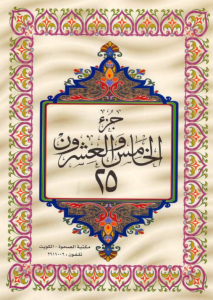 جزء
الخامس والعشرون
٢٥
مكتبة الصحوة - الكويت